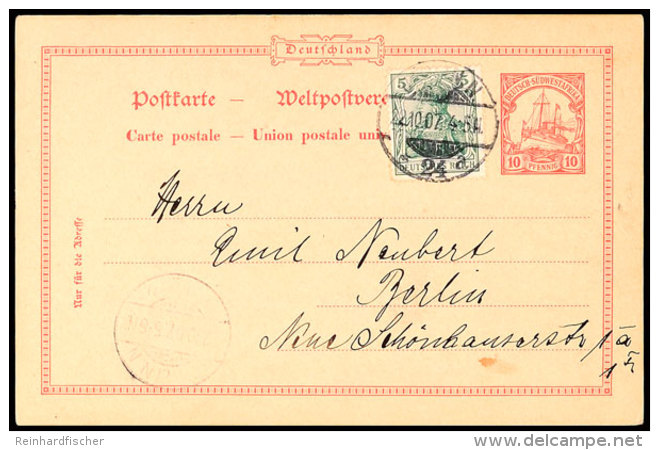 Deutschland
Postkarte — Weltpostvere
Carte postale — Union postale uni
DEUTSCH-SÜDWESTAFRIKA
10 PFENNIG 10
5
DEUTSCHES REICH
10.07. 4-5N.
Nur für die Adresse
Herrn
Emil Neubert
Berlin
Neue Schönhauserstr 1a
1 Tr
Reinhardfischer
delcampe.net